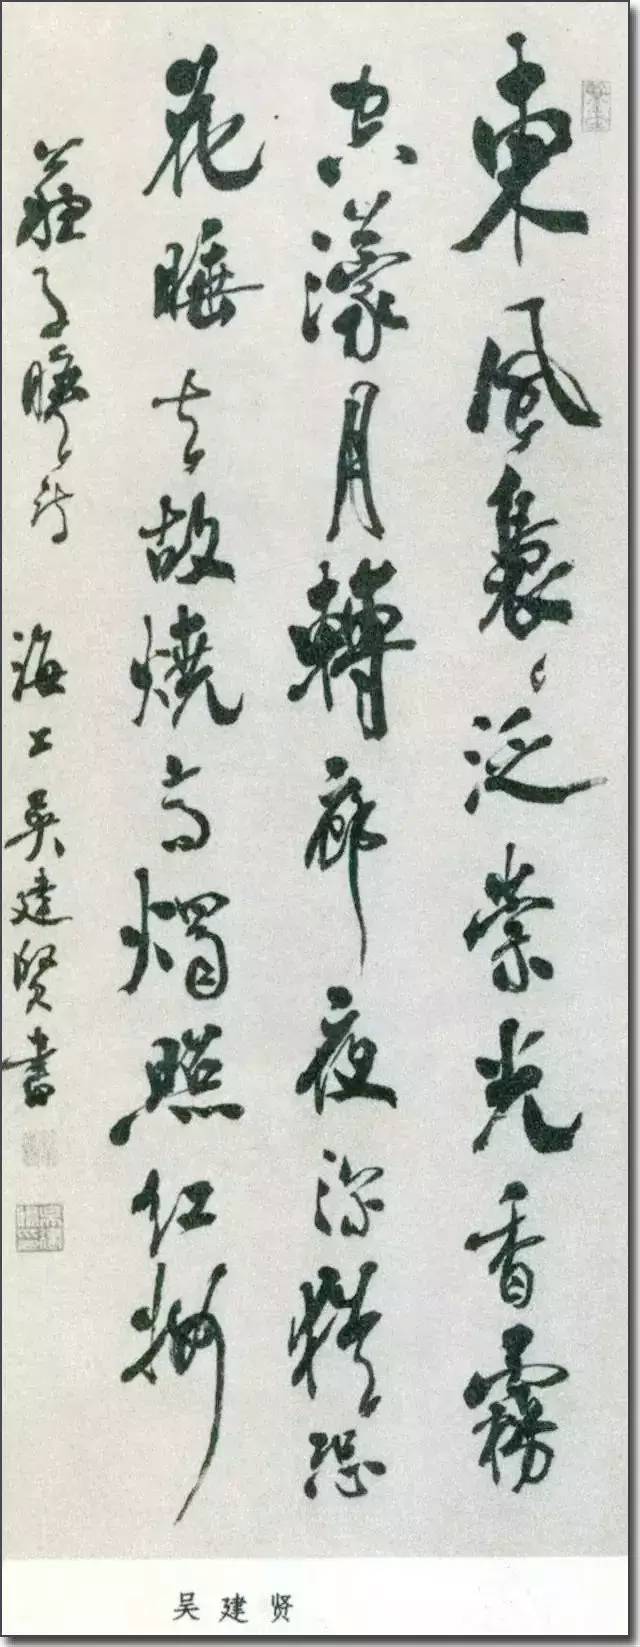 東風裊々泛崇光香霧
空濛月轉廊夜深恐
花睡去故燒高燭照紅妝
蘇子瞻詩 海上吳建賢書
吴建贤